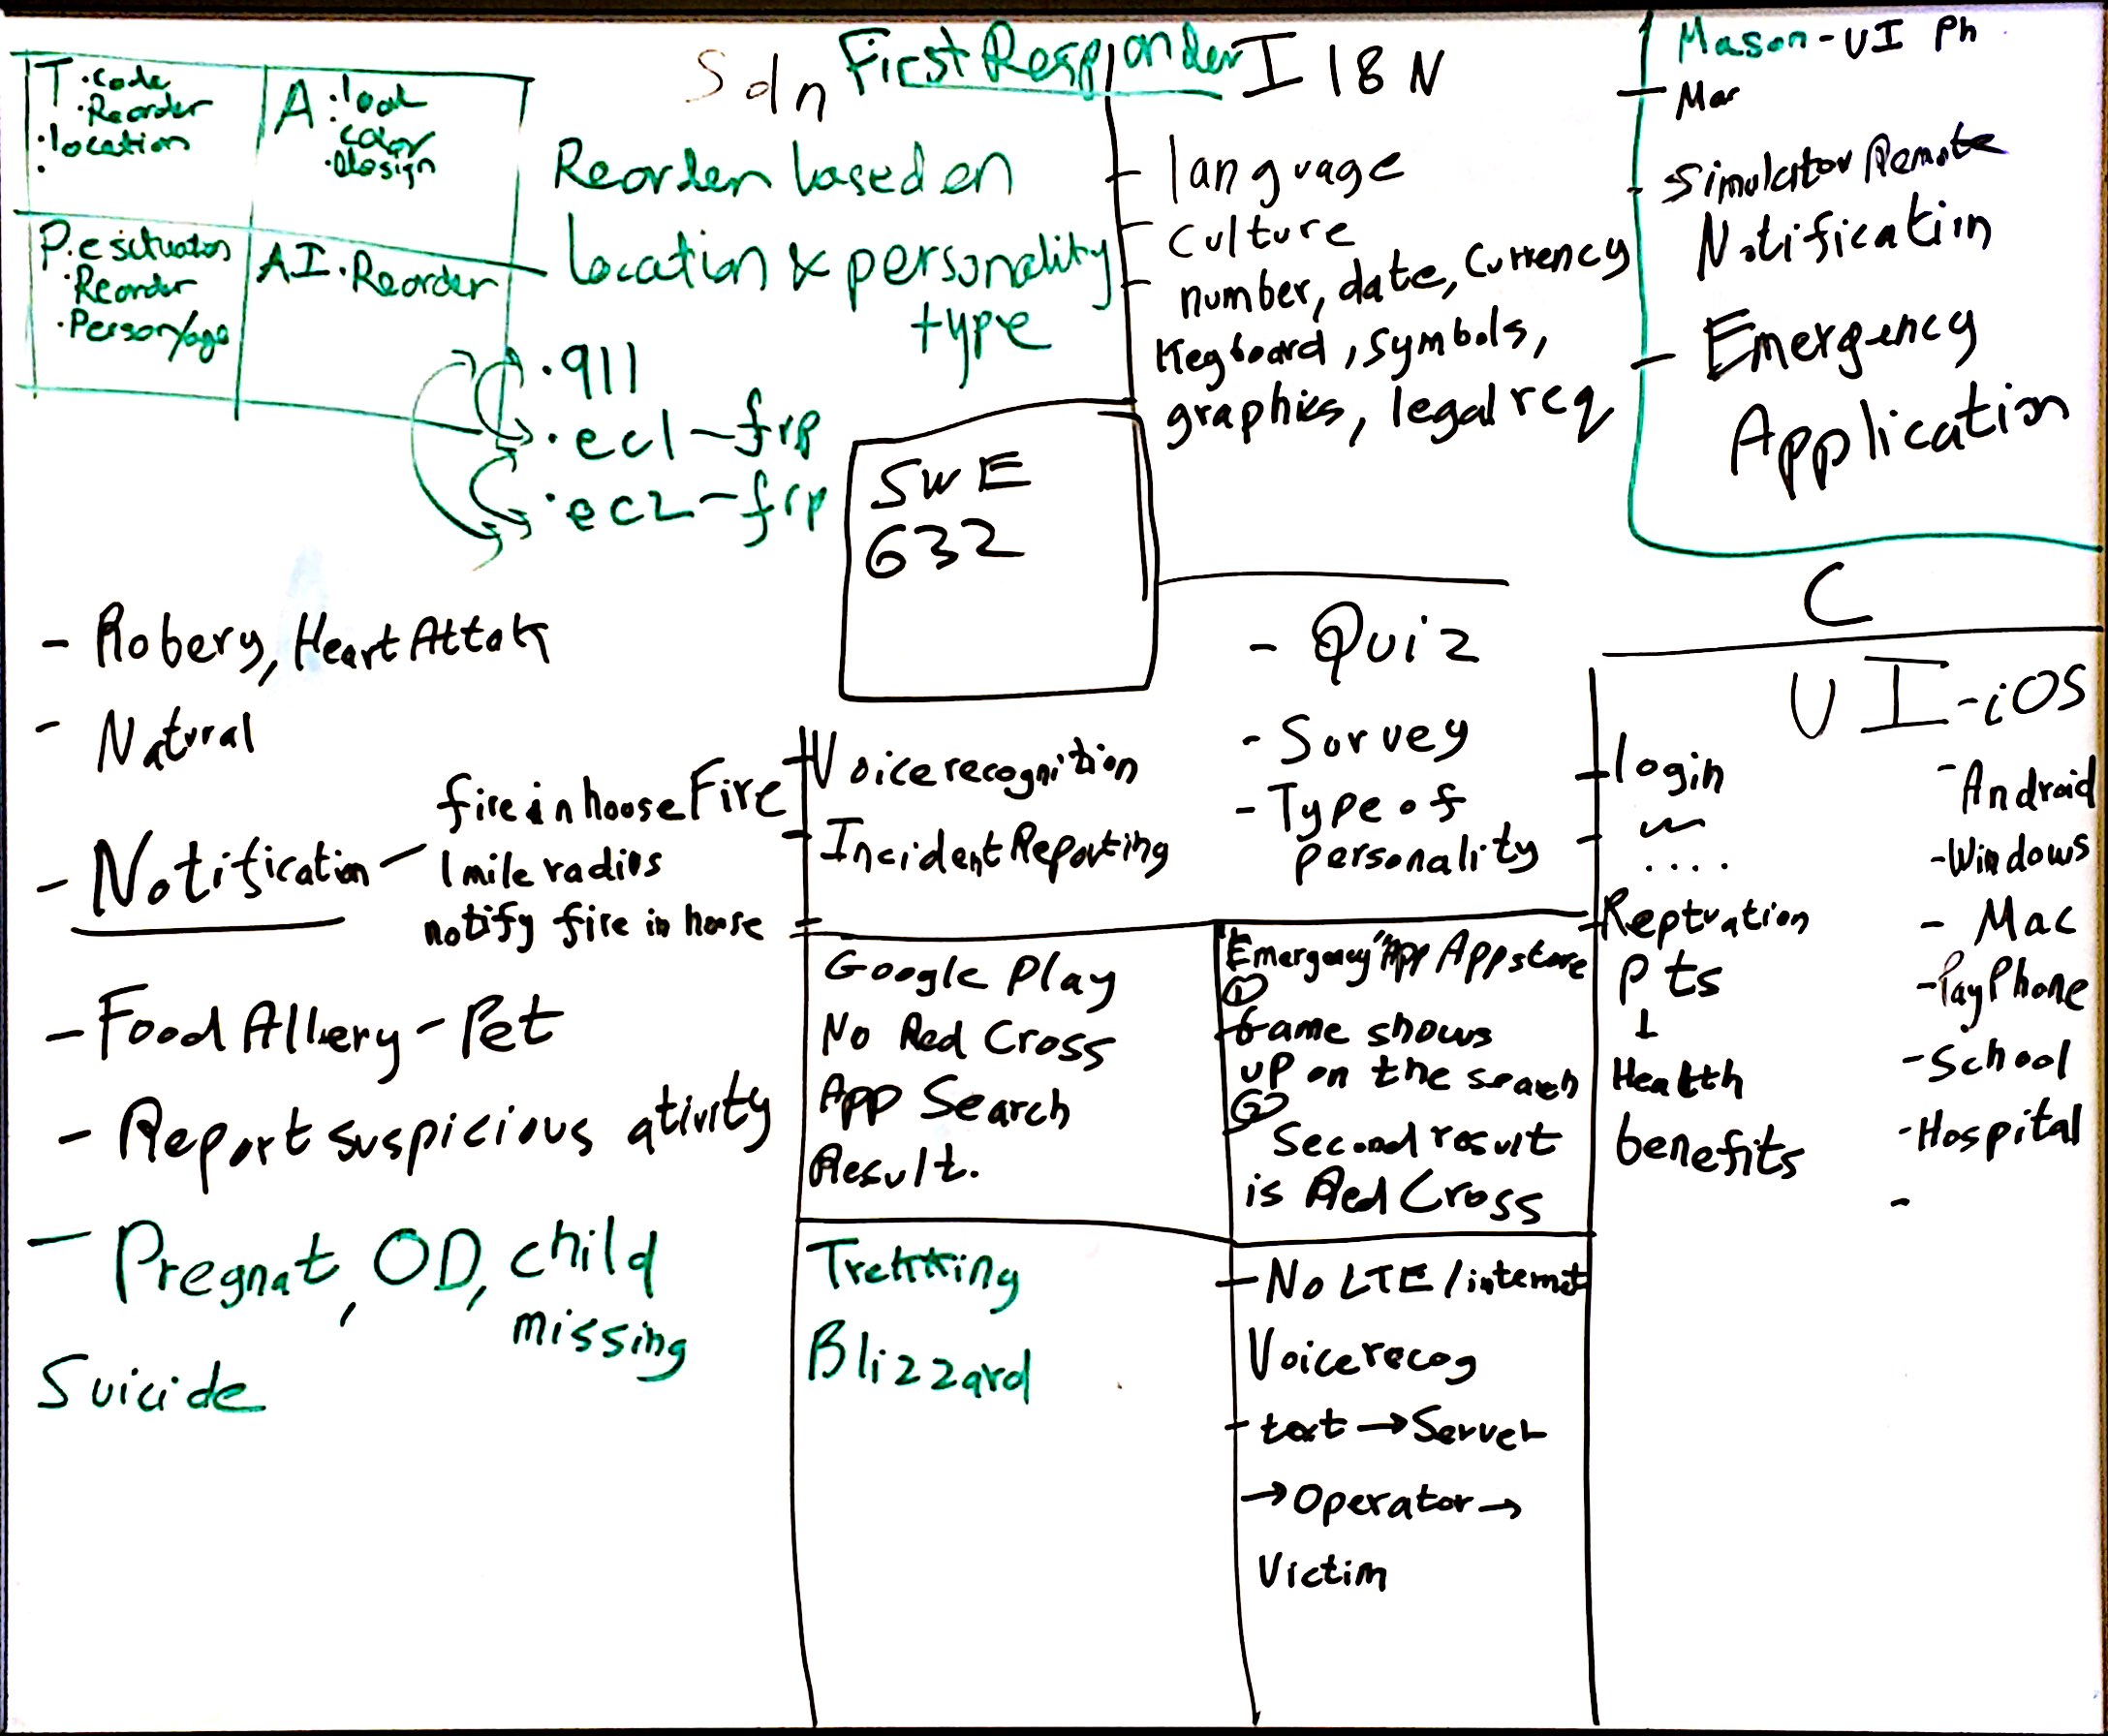 T. code
. Reorder
. location
.
A: look
color
. Design
P. e situation
. Reorder
. Person/age
AI. Reorder
Sdn First Responder
Reorder based on
location & personality
type
. 911
. ec1 - frp
. ec2 - frp
I18N
- language
- culture
- number, date, currency
Keyboard, symbols,
graphics, legal req
Mason-UI Ph
- Mar
- Simulator Remote
Notification
- Emergency
Application
SWE
632
C
- Robery, Heart Attak
- Natural
- Notification - fire in house Fire
1 mile radius
notify fire in house
- Food Allery - Pet
- Report suspicious ativity
- Pregnat, OD, child
missing
Suicide
- Voice recognition
- Incident Reporting
- Quiz
- Survey
- Type of
personality
Google Play
No Red Cross
App Search
Result.
Emergency "App Appstore
①
Game shows
up on the search
②
Second result
is Red Cross
Trekking
Blizzard
- No LTE / internet
Voice recog
- text → Server
→ Operator →
Victim
UI - iOS
- Android
- Windows
- Mac
- Pay Phone
- School
- Hospital
-
- login
- ....
- Reptuation
Pts
Health
benefits